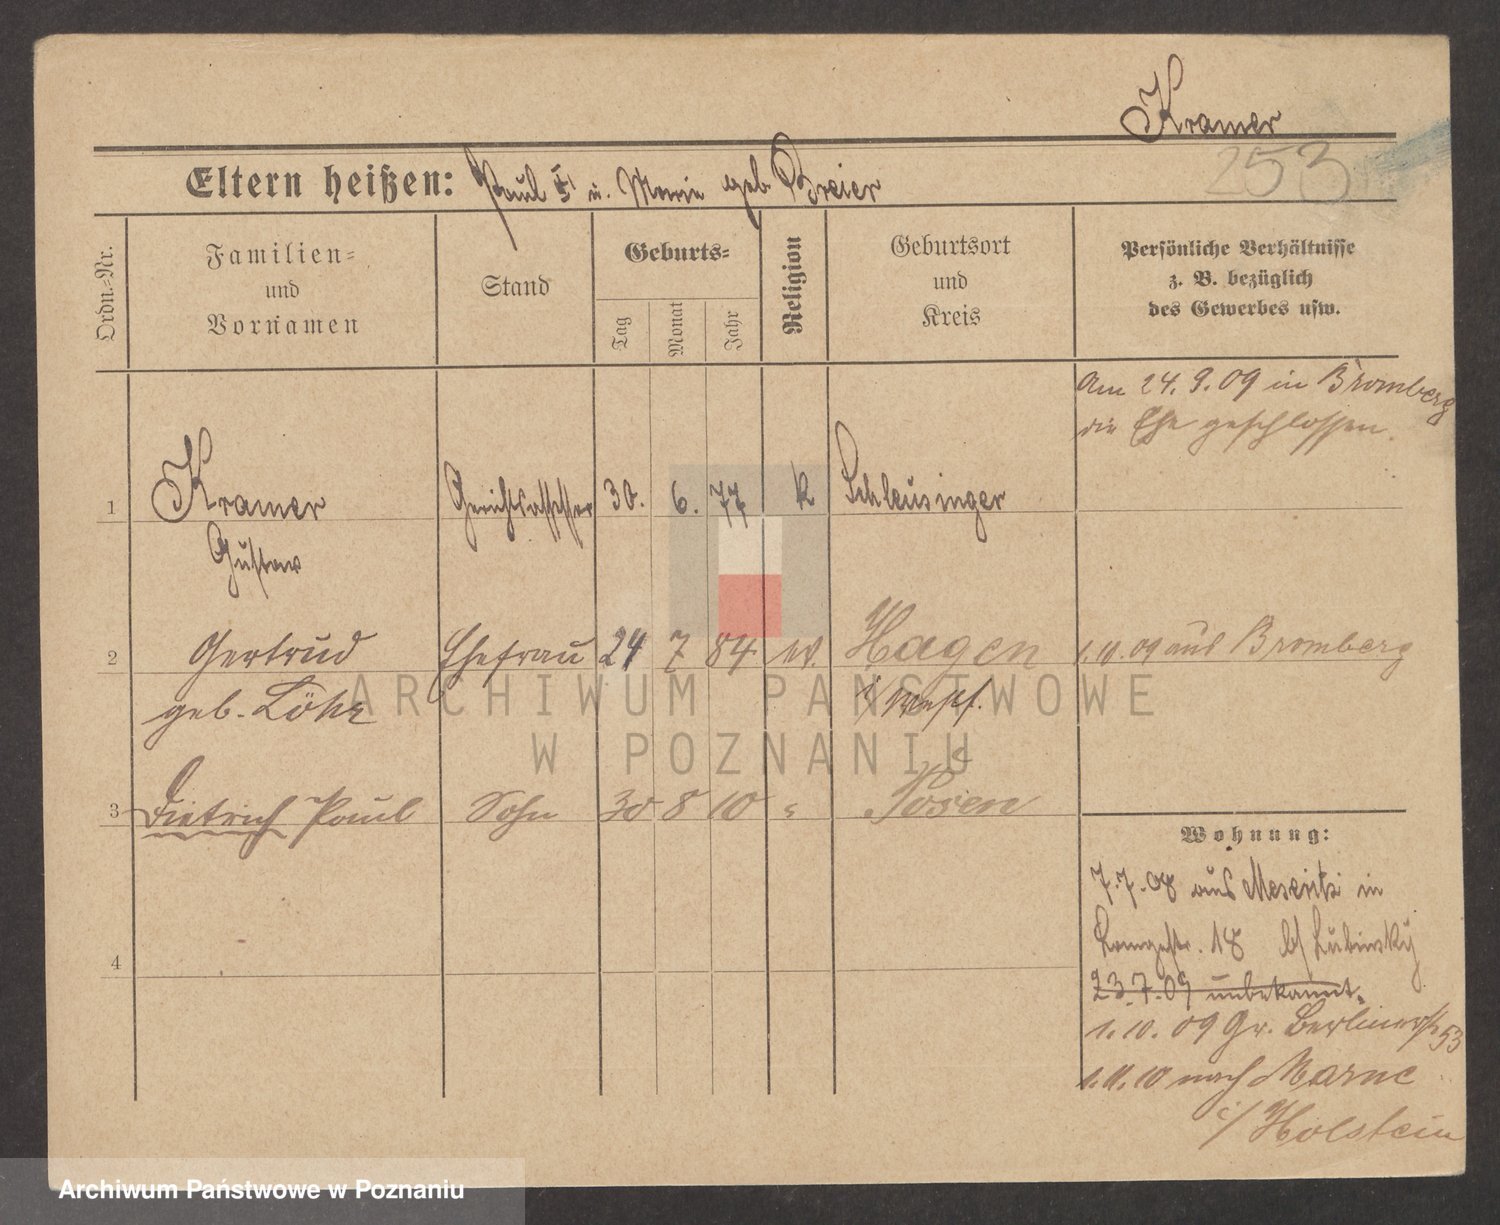 Kramer
253
Eltern heißen: Paul † u. Marie geb. Breier
Ordn.-Nr.
Familien-
und
Vornamen
Stand
Geburts-
Tag
Monat
Jahr
Religion
Geburtsort
und
Kreis
Persönliche Verhältnisse
z. B. bezüglich
des Gewerbes usw.
Am 24.9.09 in Bromberg
die Ehe geschlossen.
1 Kramer Gerichtsassessor 30. 6. 77 k Schleusinger
Gustav
2 Gertrud Ehefrau 24 7 84 ev. Hagen 1.10.09 aus Bromberg
geb. Löhr i/Westf.
3 Dietrich Paul Sohn 30 8 10 " Posen
Wohnung:
7.7.08 aus Meseritz in
Langestr. 18 b/ Lubinsky
4
23.7.09 unbekannt.
1.10.09 Gr. Berlinerstr 53
1.11.10 nach Marne
i/ Holstein
ARCHIWUM PAŃSTWOWE
W POZNANIU
Archiwum Państwowe w Poznaniu